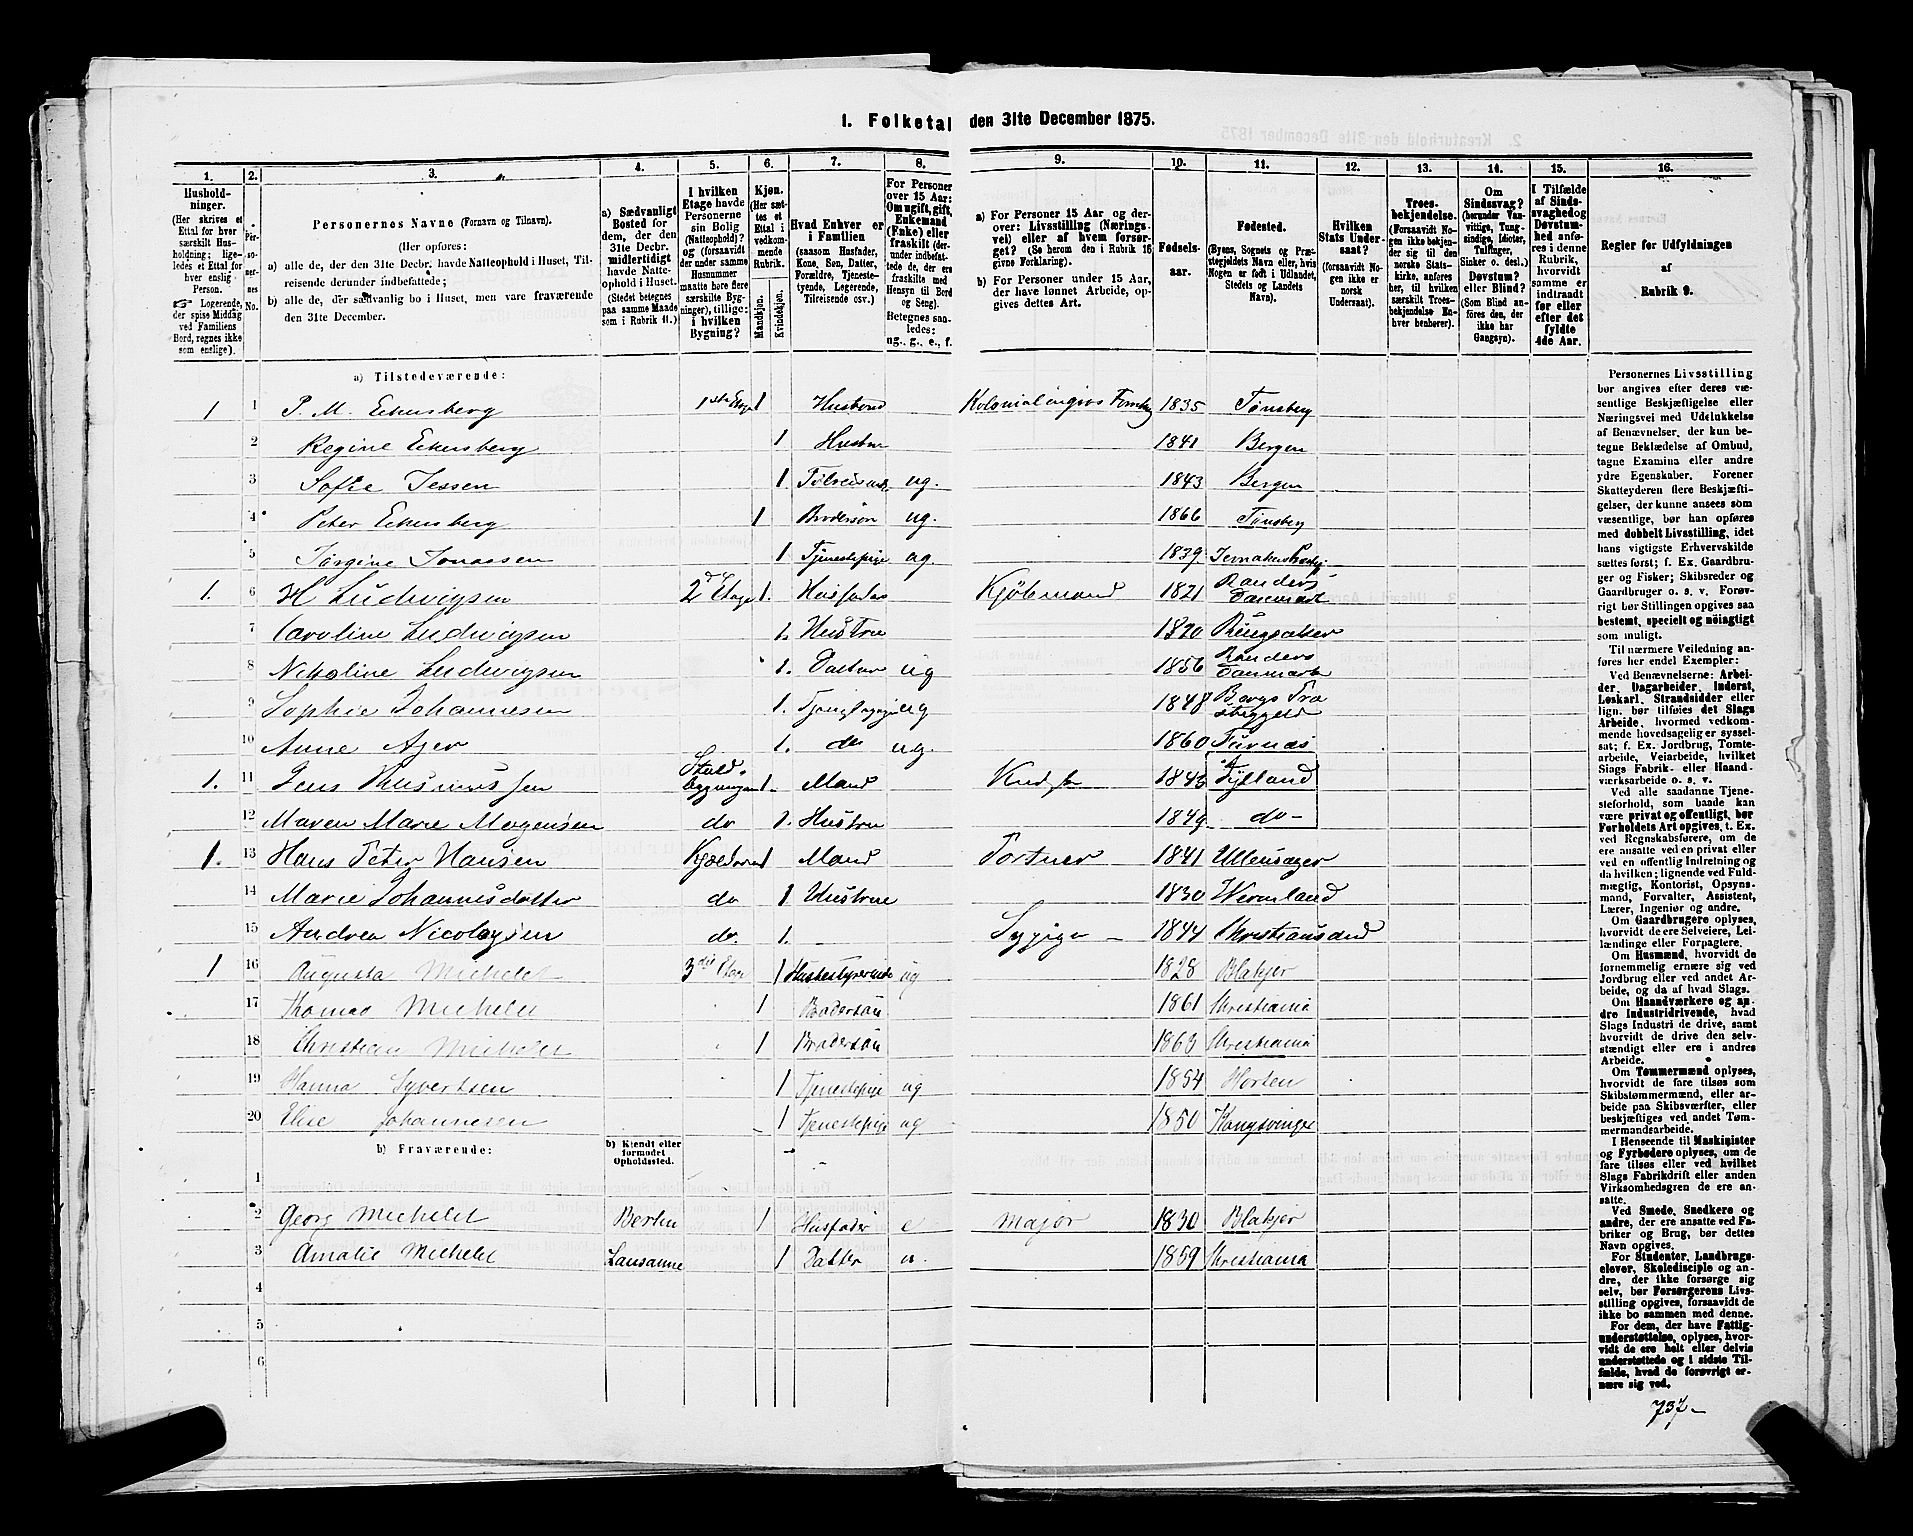 1. Folketal den 31te December 1875.
1. 2. 3. 4. 5. 6. 7. 8. 9. 10. 11. 12. 13. 14. 15. 16.
Hushold-
ninger.
(Her skrives et
Ettal for hver
særskilt Hus-
holdning; lige-
ledes et Ettal for
hver enslig
Person.
☞ Logerende,
der spise Middag
ved Familiens
Bord, regnes ikke
som enslige).
Per-
so-
ner-
nes
No.
Personernes Navne (Fornavn og Tilnavn).
(Her opføres:
a) alle de, der den 31te Decbr. havde Natteophold i Huset, Til-
reisende derunder indbefattede;
b) alle de, der sædvanlig bo i Huset, men vare fraværende
den 31te December.
a) Sædvanligt
Bosted for
dem, der den
31te Decbr.
midlertidigt
havde Natte-
ophold i Huset.
(Stedet betegnes
paa samme Maade
som i Rubrik 11.)
I hvilken
Etage havde
Personerne
sin Bolig
(Natteophold)?
og (forsaavidt
der under samme
Husnummer
maatte høre flere
særskilte Byg-
ninger), tillige:
i hvilken
Bygning?
Kjøn.
(Her sæt-
tes et
Ettal i
vedkom-
mende
Rubrik.
Mandkjøn.
Kvindekjøn.
Hvad Enhver er
i Familien
(saasom Husfader,
Kone, Søn, Datter,
Forældre, Tjeneste-
tyende, Logerende,
Tilreisende osv.)
For Personer
over 15 Aar:
Om ugift, gift,
Enkemand
(Enke) eller
fraskilt (der-
under indbefat-
tede de, der ere
fraskilte med
Hensyn til Bord
og Seng).
Betegnes saa-
ledes:
ug., g., e., f.
a) For Personer 15 Aar og der-
over: Livsstilling (Nærings-
vei) eller af hvem forsør-
get? (Se herom den i Rubrik 16
givne Forklaring).
b) For Personer under 15 Aar,
der have lønnet Arbeide, op-
gives dettes Art.
Fødsels-
aar.
Fødested.
(Byens, Sognets og Præ-
stegjeldets Navn eller, hvis
Nogen er født i Udlandet,
Stedets og Landets
Navn).
Hvilken
Stats Under-
saat?
(forsaavidt No-
gen ikke er
norsk
Undersaat).
Troes-
bekjendelse.
(Forsaavidt No-
gen ikke bekjen-
der sig til den
norske Stats-
kirke, anføres
her, til hvilken
særskilt Troes-
bekjendelse En-
hver henhører).
Om
Sindssvag?
(herunder Van-
vittige, Tung-
sindige, Idioter,
Tullinger,
Sinker o. desl.)
Døvstum?
eller Blind?
(Som Blind an-
føres den, der
ikke har
Gangsyn).
I Tilfælde
af Sinds-
svaghed og
Døvstum-
hed anfø-
res i denne
Rubrik,
hvorvidt
samme er
indtraadt
før eller
efter det
fyldte
4de Aar.
Regler for Udfyldningen
af
Rubrik 9.
a) Tilstedeværende:
1 1 P. M. Eckersberg 1ste Etage 1 Husbond 1835 Tønsberg
2 Regine Eckersberg 1 Hustru 1841 Bergen
3 Sofie Jessen 1 ug. 1843 Bergen
4 Peter Eckersberg 1 Brodersøn ug. 1866 Tønsberg
5 Jørgine Jonassen 1 Tjenestepige ug 1839
1. 6 H Ludvigsen 2den Etage 1. Husfader Kjøbmand 1821 Randers Danmark
7 Caroline Ludvigsen 1. Hustru 1820 Ringsaker
8 Nikoline Ludvigsen 1. Datter ug 1856 Randers Danmark
9 Sophie Johannesen 1. ug 1848
10 Anne Ager 1. do ug. 1860
1. 11 Jens 1. Mand Kudsk Jylland
12 Maren Marie Mogensen do 1. Hustru 1849 do-
1. 13 Hans Peter Hansen Kjælderen 1 Mand Portner 1841 Ullensager
14 Marie Johannesdatter do 1 Hustrue 1830 Wermland
15 Andrea Nicolaysen do. 1. Sypige - 1844 Christiansand
1 16 Augusta Michelet 3die Etage 1 Husbestyrerinde ug 1828 Blakjer
17 Thomas Michelet 1 Brodersøn 1861 Christiania
18 Christian Michelet 1 Brodersøn 1863 Christiania
19 Hanna Syvertsen 1 Tjenestepige ug 1854 Horten
20 Elise Johannesen 1 Tjenestepige ug 1850 Kongsvinger
b) Fraværende:
b) Kjendt eller
formodet
Opholdssted.
1
2 Georg Michelet Berlin 1 Husfader e Major 1830 Blakjer
3 Amalie Michelet Lausanne 1 Datter 1859 Christiania
4
5
6
Personernes Livsstilling
bør angives efter deres væ-
sentlige Beskjæftigelse eller
Næringsvei med Udelukkelse
af Benævnelser, der kun be-
tegne Beklædelse af Ombud,
tagne Examina eller andre
ydre Egenskaber. Forener
Skatteyderen flere Beskjæfti-
gelser, der kunne ansees som
væsentlige, bør han opføres
med dobbelt Livsstilling, idet
hans vigtigste Erhvervskilde
sættes først; f. Ex. Gaardbru-
ger og Fisker; Skibsreder og
Gaardbruger o. s. v. Forøv-
rigt bør Stillingen opgives saa
bestemt, specielt og nøiagtigt
som muligt.
Til nærmere Veiledning an-
føres her endel Exempler:
Ved Benævnelserne: Arbei-
der, Dagarbeider, Inderst,
Løskarl, Strandsidder eller
lign. bør tilføies det Slags
Arbeide, hvormed vedkom-
mende hovedsagelig er syssel-
sat; f. Ex. Jordbrug, Tomte-
arbeide, Veiarbeide, hvilket
Slags Fabrik- eller Haand-
værksarbeide o. s. v.
Ved alle saadanne Tjene-
steforhold, som baade kan
være privat og offentligt, bør
Forholdets Art opgives, t. Ex.
ved Regnskabsførere, om de
ere ansatte ved en privat eller
ved en offentlig Indretning og
da hvilken; lignende ved Fuld-
mægtig, Kontorist, Opsyns-
mand, Forvalter, Assistent,
Lærer, Ingeniør og andre.
Om Gaardbrugere oplyses,
hvorvidt de ere Selveiere, Lei-
lændinge eller Forpagtere.
Om Husmænd, hvorvidt de
fornemmelig ernære sig ved
Jordbrug eller ved andet Ar-
beide, og da af hvad Slags.
Om Haandværkere og an-
dre Industridrivende, hvad
Slags Industri de drive, samt
hvorvidt de drive den selv-
stændigt eller ere i andres
Arbeide.
Om Tømmermænd oplyses,
hvorvidt de fare tilsøs som
Skibstømmermænd, eller ar-
beide paa Skibsværfter, eller
beskjæftiges ved andet Tøm-
mermandsarbeide.
I Henseende til Maskinister
og Fyrbødere oplyses, om de
fare tilsøs eller ved hvilket
Slags Fabrikdrift eller anden
Virksomhedsgren de ere an-
satte.
Ved Smede, Snedkere og
andre, der ere ansatte ved Fa-
briker og Brug, bør dettes
Navn opgives.
For Studenter, Landbrugs-
elever, Skoledisciple og an-
dre, der ikke forsørge sig
selv, bør Forsørgerens Livs-
stilling opgives, forsaavidt de
ikke bo sammen med denne.
For dem, der have Fattig-
understøttelse, oplyses, hvor-
vidt de ere helt eller delvis
understøttede og i sidste Til-
fælde, hvad de forøvrigt er-
nære sig ved.
737-